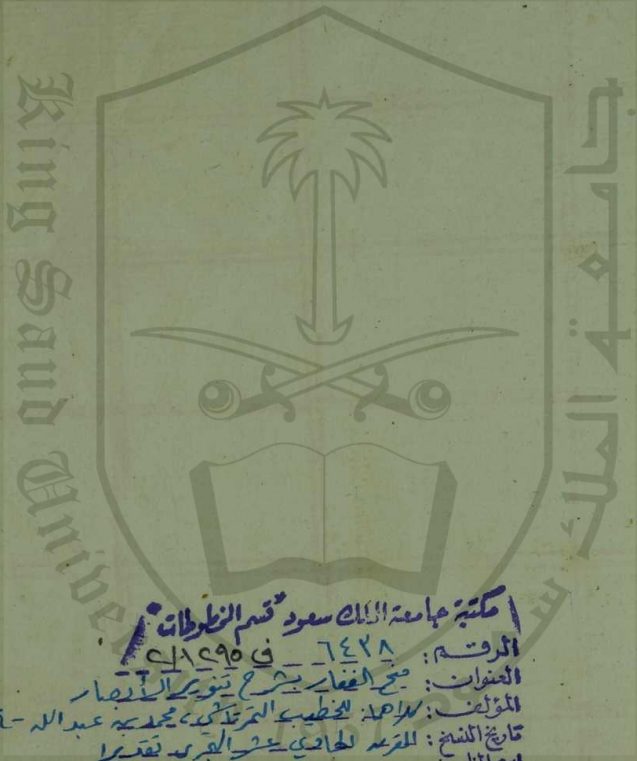 King Saud University
جامعة الملك سعود
1957
مكتبة جامعة الملك سعود "قسم المخطوطات"
الرقم: ٦٤٣٨ ف ٢/١٢٩٥
العنوان: منح الغفار بشرح تنوير الأبصار
المؤلف: كلاهما للخطيب التمرتاشي، محمد بن عبد الله
تاريخ النسخ: القرن الحادي عشر الهجري تقديرا